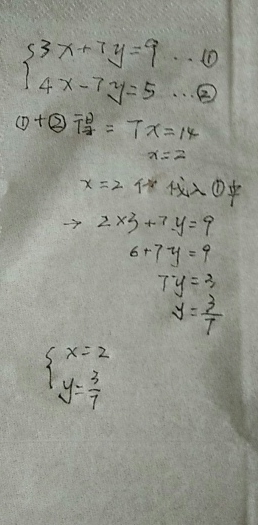 {3x+7y=9 …①
4x-7y=5 …②
①+②得= 7x=14
x=2
x=2 代入①中
→ 2×3+7y=9
6+7y=9
7y=3
y=3/7
{x=2
y=3/7